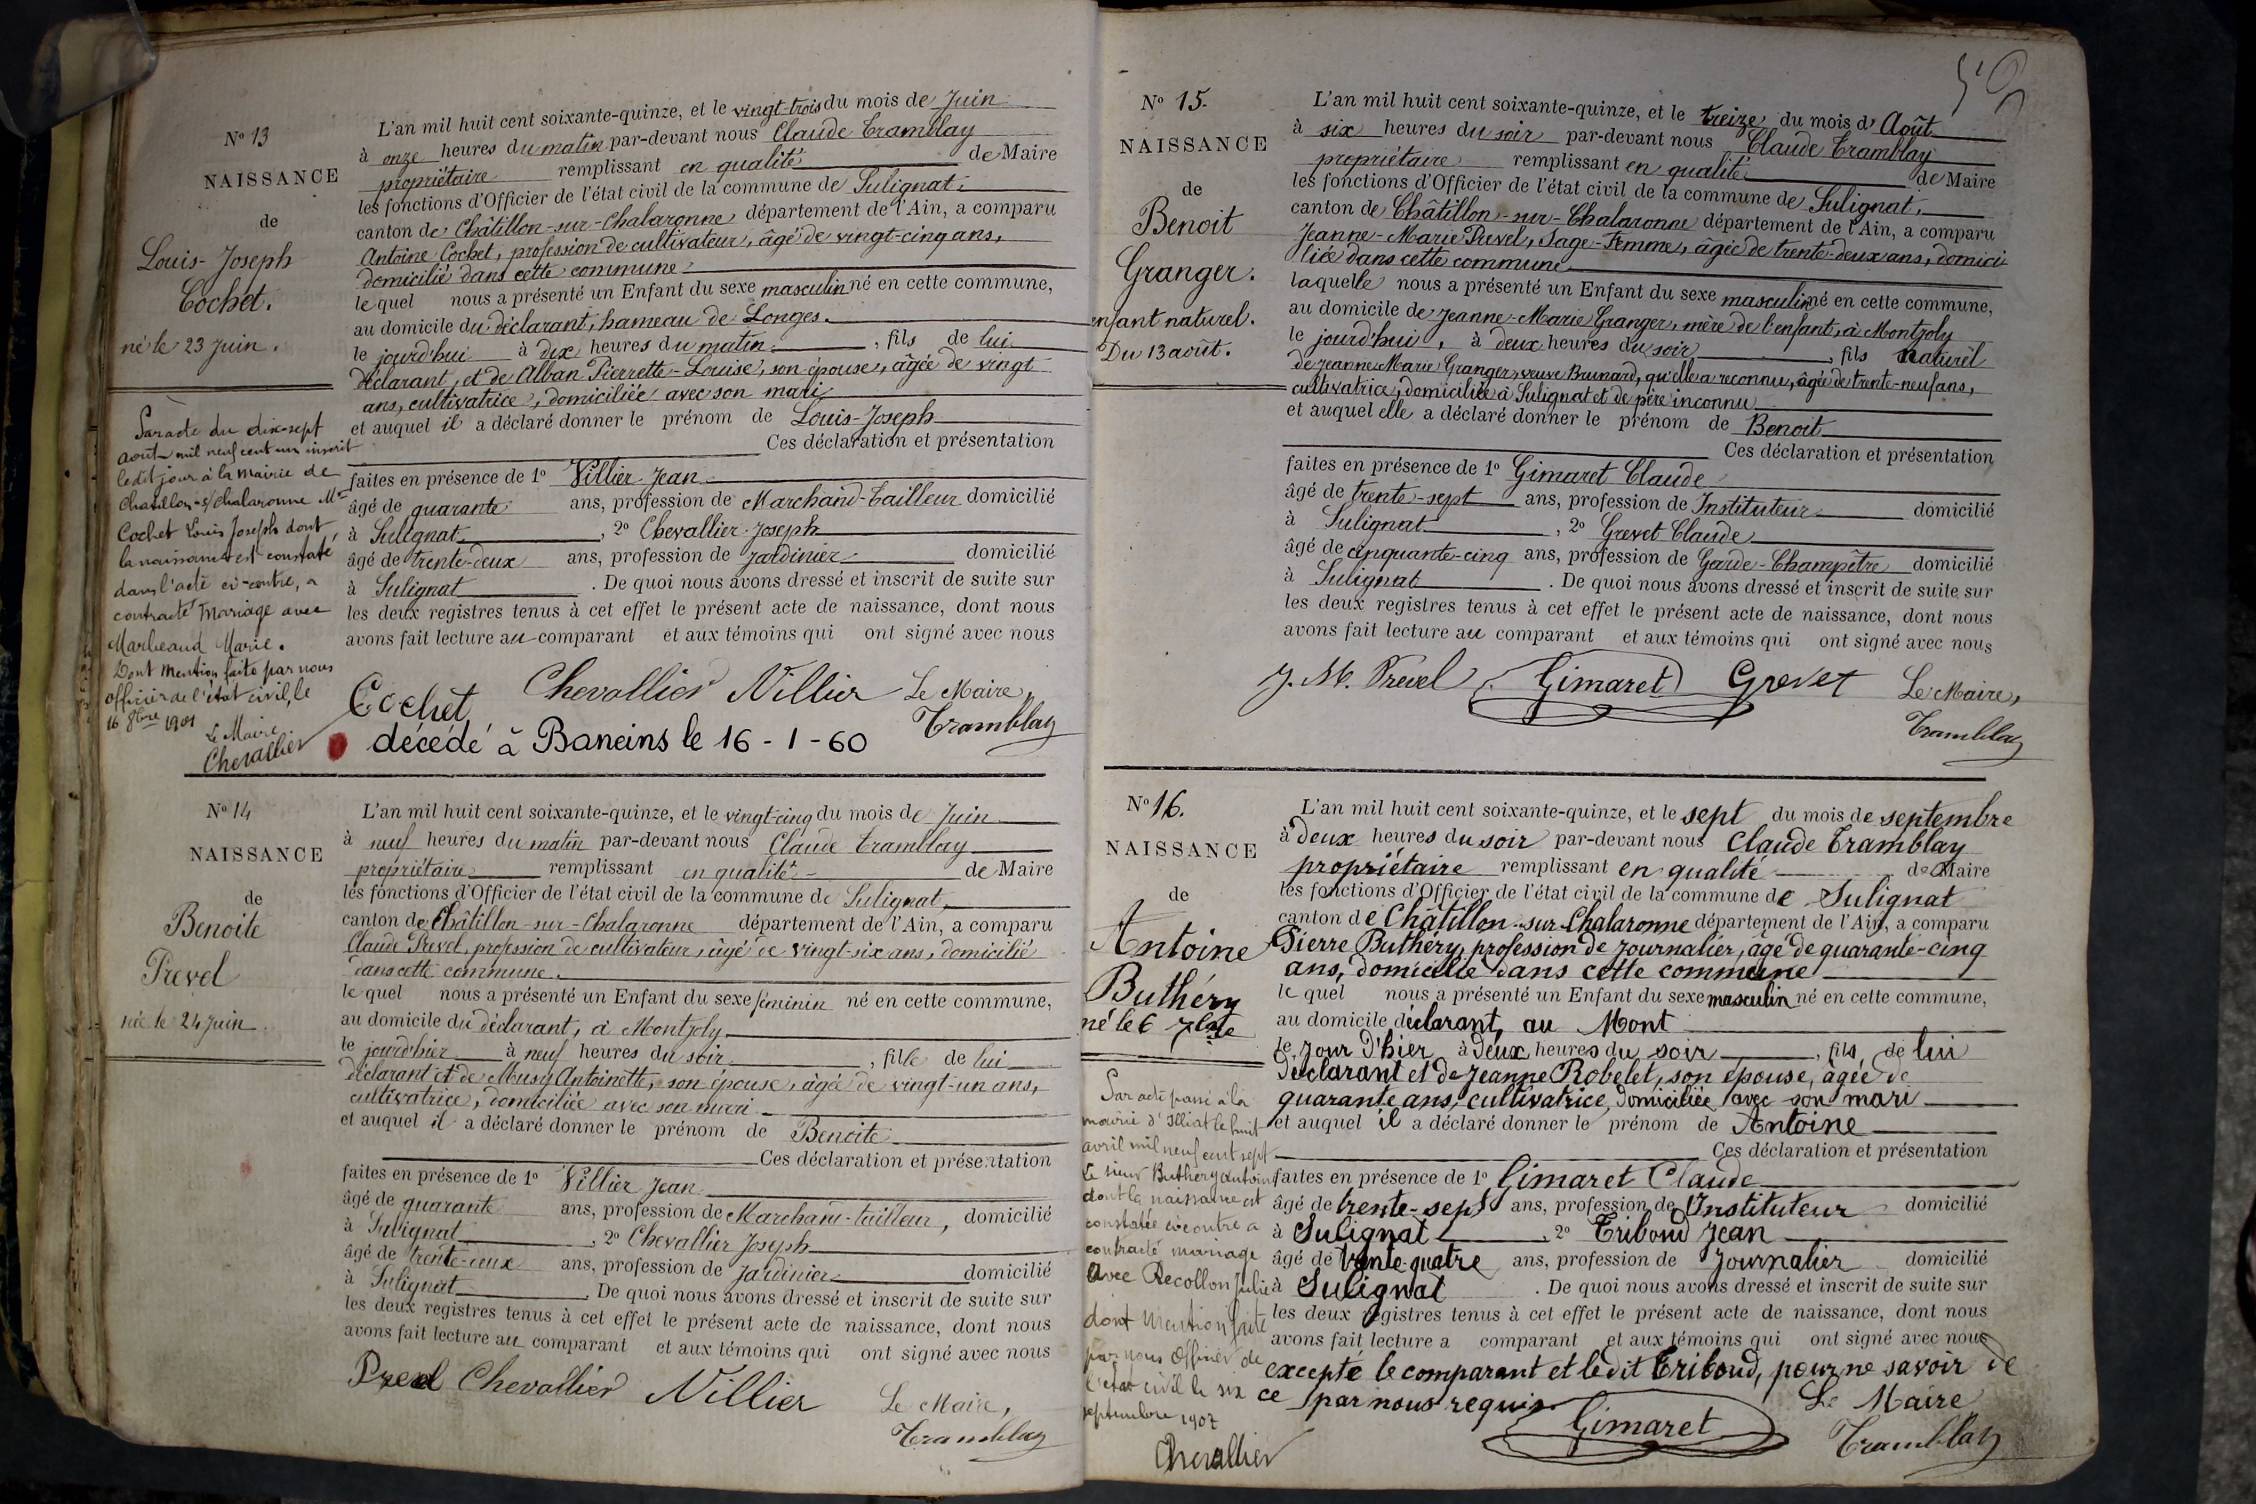 N° 13
NAISSANCE
de
Louis-Joseph
Cochet.
né le 23 Juin.
Par acte du dix-sept
août mil neuf cent un inscrit
ledit jour à la mairie de
Chatillon-s/Chalaronne Mr
Cochet Louis Joseph dont
la naissance est constatée
dans l'acte ci-contre, a
contracté Mariage avec
Marbeaud Marie.
Dont Mention faite par nous
officier de l'état civil, le
16 8bre 1901
Le Maire
Chevallier
L'an mil huit cent soixante-quinze, et le vingt-trois du mois de Juin
à onze heures du matin par-devant nous Claude Tramblay
propriétaire remplissant en qualité de Maire
les fonctions d'Officier de l'état civil de la commune de Sulignat,
canton de Châtillon-sur-Chalaronne département de l'Ain, a comparu
Antoine Cochet, profession de cultivateur, âgé de vingt-cinq ans,
domicilié dans cette commune
lequel nous a présenté un Enfant du sexe masculin né en cette commune,
au domicile du déclarant, hameau de Longes.
le jourd'hui à dix heures du matin , fils de lui
déclarant, et de Alban Pierrette-Louise, son épouse, âgée de vingt
ans, cultivatrice, domiciliée avec son mari
et auquel il a déclaré donner le prénom de Louis-Joseph
Ces déclaration et présentation
faites en présence de 1° Villier Jean
âgé de quarante ans, profession de Marchand-Tailleur domicilié
à Sulignat , 2° Chevallier Joseph
âgé de trente-deux ans, profession de jardinier domicilié
à Sulignat . De quoi nous avons dressé et inscrit de suite sur
les deux registres tenus à cet effet le présent acte de naissance, dont nous
avons fait lecture au comparant et aux témoins qui ont signé avec nous
Cochet Chevallier Villier Le Maire,
Tramblay
décédé à Baneins le 16-1-60
N° 14
NAISSANCE
de
Benoite
Prevel
née le 24 Juin.
L'an mil huit cent soixante-quinze, et le vingt-cinq du mois de Juin
à neuf heures du matin par-devant nous Claude Tramblay
propriétaire remplissant en qualité de Maire
les fonctions d'Officier de l'état civil de la commune de Sulignat,
canton de Châtillon-sur-Chalaronne département de l'Ain, a comparu
Claude Prevel, profession de cultivateur, âgé de vingt-six ans, domicilié
dans cette commune.
lequel nous a présenté un Enfant du sexe féminin né en cette commune,
au domicile du déclarant, à Montjoly
le jourd'hier à neuf heures du soir , fille de lui
déclarant et de Musy Antoinette, son épouse, âgée de vingt-un ans,
cultivatrice, domiciliée avec son mari
et auquel il a déclaré donner le prénom de Benoite
Ces déclaration et présentation
faites en présence de 1° Villier Jean
âgé de quarante ans, profession de Marchand-tailleur, domicilié
à Sulignat , 2° Chevallier Joseph
âgé de trente-deux ans, profession de jardinier domicilié
à Sulignat . De quoi nous avons dressé et inscrit de suite sur
les deux registres tenus à cet effet le présent acte de naissance, dont nous
avons fait lecture au comparant et aux témoins qui ont signé avec nous
Prevel Chevallier Villier Le Maire,
Tramblay
N° 15.
NAISSANCE
de
Benoit
Granger.
enfant naturel.
Du 13 août.
L'an mil huit cent soixante-quinze, et le treize du mois d'Août
à six heures du soir par-devant nous Claude Tramblay
propriétaire remplissant en qualité de Maire
les fonctions d'Officier de l'état civil de la commune de Sulignat,
canton de Châtillon-sur-Chalaronne département de l'Ain, a comparu
Jeanne-Marie Prevel, Sage-Femme, âgée de trente-deux ans, domici
liée dans cette commune
laquelle nous a présenté un Enfant du sexe masculin né en cette commune,
au domicile de Jeanne-Marie Granger, mère de l'enfant, à Montjoly
le jourd'hui, à deux heures du soir , fils naturel
de Jeanne Marie Granger, veuve Brunard, qu'elle a reconnu, âgée de trente-neuf ans,
cultivatrice, domiciliée à Sulignat et de père inconnu
et auquel elle a déclaré donner le prénom de Benoit
Ces déclaration et présentation
faites en présence de 1° Gimaret Claude
âgé de trente-sept ans, profession de Instituteur domicilié
à Sulignat , 2° Grevet Claude
âgé de cinquante-cinq ans, profession de Garde-Champêtre domicilié
à Sulignat . De quoi nous avons dressé et inscrit de suite sur
les deux registres tenus à cet effet le présent acte de naissance, dont nous
avons fait lecture au comparant et aux témoins qui ont signé avec nous
J. M. Prevel Gimaret Grevet Le Maire,
Tramblay
N° 16.
NAISSANCE
de
Antoine
Buthéry
né le 6 7bre
Par acte passé à la
mairie d'Illiat le huit
avril mil neuf cent sept
le sieur Buthéry Antoine
dont la naissance est
constatée ci contre a
contracté mariage
avec Recollon Julie
dont Mention faite
par nous Officier de
l'état civil le six
septembre 1907
Chevallier
L'an mil huit cent soixante-quinze, et le sept du mois de septembre
à deux heures du soir par-devant nous Claude Tramblay
propriétaire remplissant en qualité de Maire
les fonctions d'Officier de l'état civil de la commune de Sulignat
canton de Châtillon-sur-Chalaronne département de l'Ain, a comparu
Pierre Buthéry, profession de journalier, âgé de quarante-cinq
ans, domicilié dans cette commune
lequel nous a présenté un Enfant du sexe masculin né en cette commune,
au domicile déclarant, au Mont
le jour d'hier à deux heures du soir , fils de lui
déclarant et de Jeanne Robelet, son épouse, âgée de
quarante ans, cultivatrice, domiciliée avec son mari
et auquel il a déclaré donner le prénom de Antoine
Ces déclaration et présentation
faites en présence de 1° Gimaret Claude
âgé de trente-sept ans, profession de Instituteur domicilié
à Sulignat , 2° Triboud Jean
âgé de trente quatre ans, profession de Journalier domicilié
à Sulignat . De quoi nous avons dressé et inscrit de suite sur
les deux registres tenus à cet effet le présent acte de naissance, dont nous
avons fait lecture a comparant et aux témoins qui ont signé avec nous
excepté le comparant et ledit Triboud, pour ne savoir de
ce par nous requis Le Maire
Gimaret Tramblay